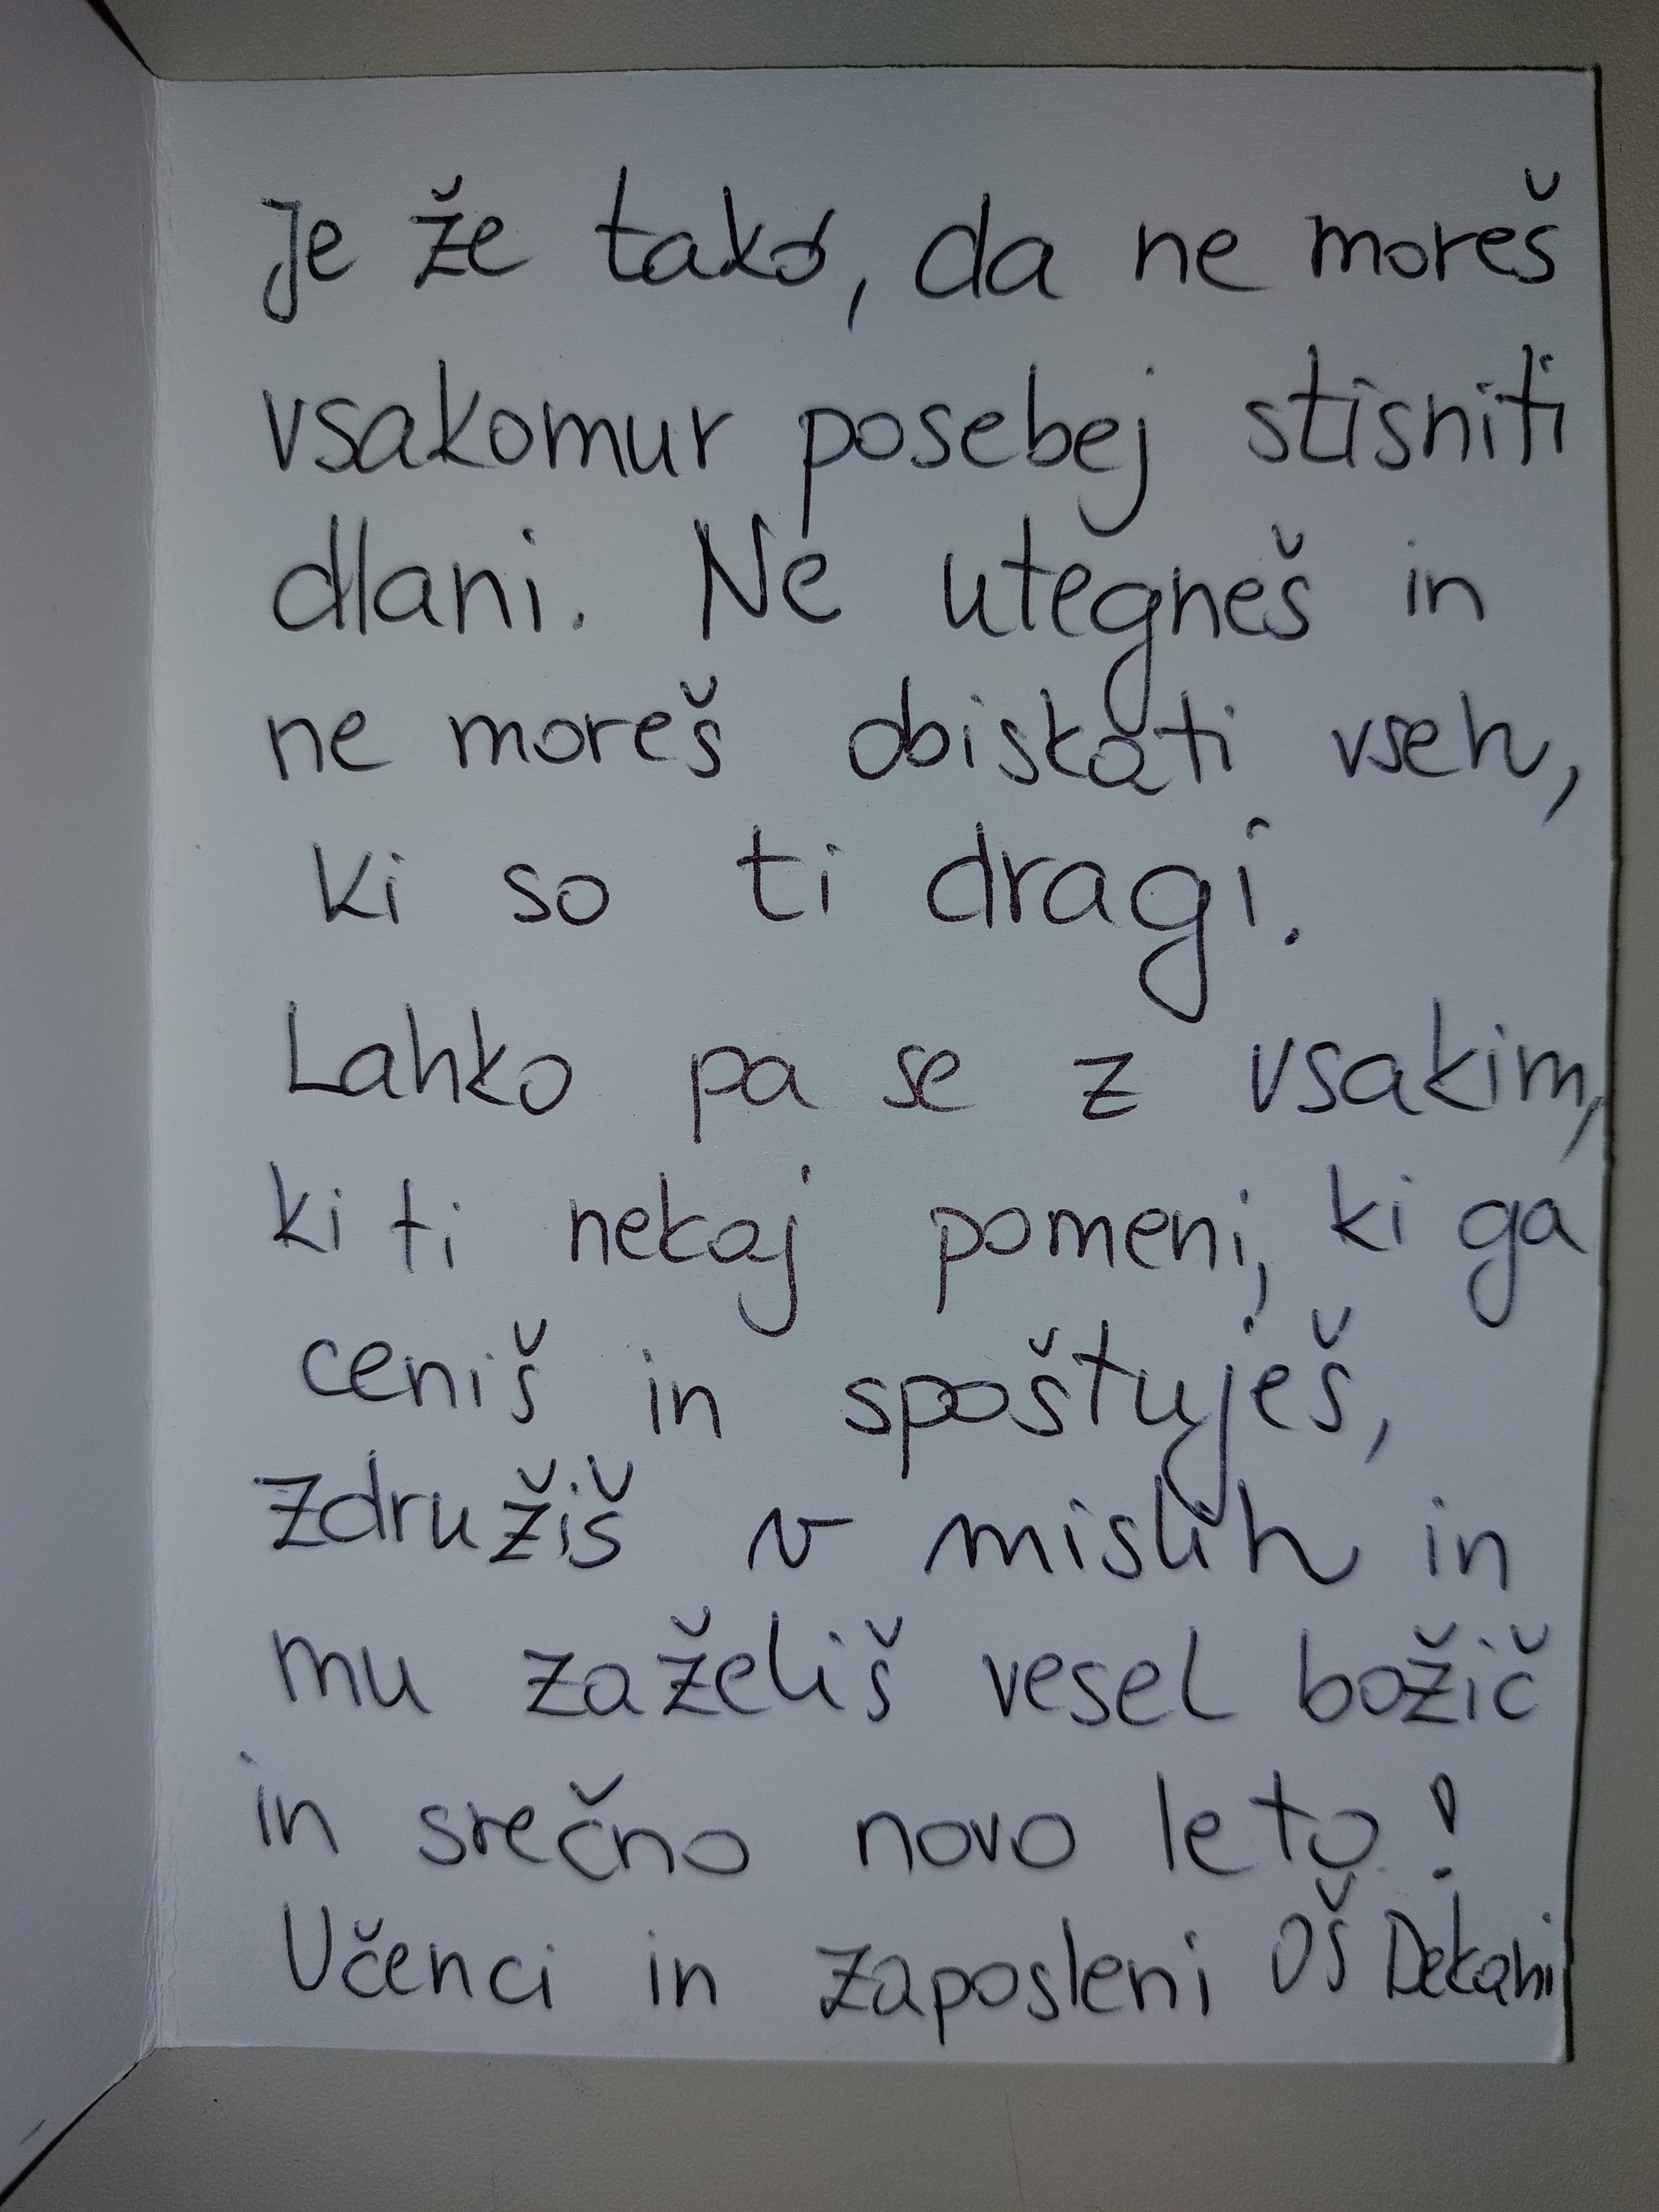 Je že tako, da ne moreš
vsakomur posebej stisniti
dlani. Ne utegneš in
ne moreš obiskati vseh,
ki so ti dragi.
Lahko pa se z vsakim,
ki ti nekaj pomeni, ki ga
ceniš in spoštuješ,
združiš v mislih in
mu zaželiš vesel božič
in srečno novo leto!
Učenci in zaposleni OŠ Dekani